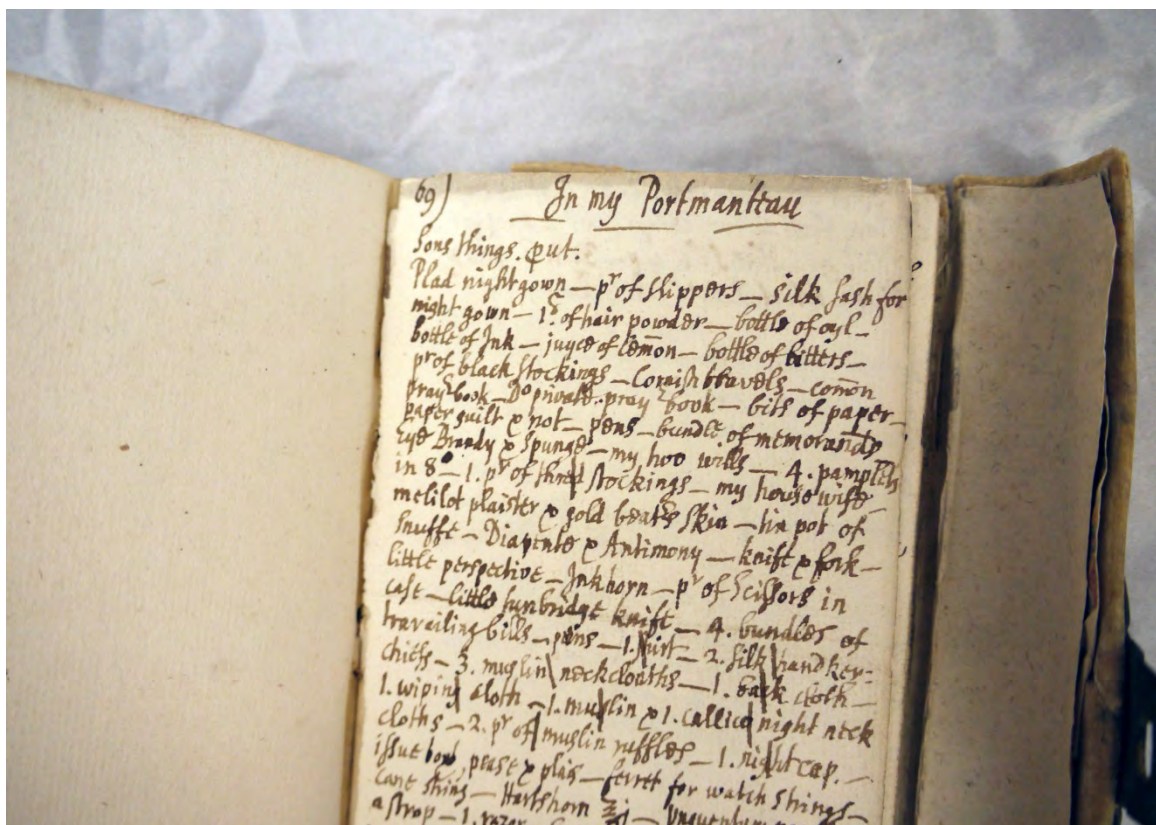 69)
In my Portmanteau
Sons things. put.
Plad nightgown — pr of Slippers — silk sash for
night gown — 1 of hair powder — bottle of oyl —
bottle of Ink — juyce of lemōn — bottle of bitters —
pr of black Stockings — Cornish — comōn
prayr book — Do private prayr book — bits of paper —
paper guilt & not — pens — bundle of memorandū
Eye Brandy & Spunge — my two wills — 4. pamphlts
in 8o — 1. pr of thred stockings — my housewife
melilot plaister & gold beaters Skin — tin pot of
Snuffe — Diapente & Antimony — knife & fork —
little perspective — Inkhorn — pr of Scissors in
case — little Tunbridge knife — 4. bundles of
travailing bills — pins — 1. shirt — 2. silk handker=
chiefs — 3. muslin neckcloaths — 1. back cloth —
1. wiping cloth — 1. muslin & 1. callico night neck
cloths — 2. pr of muslin ruffles — 1. night cap. —
issue pease & plais — ferret for watch strings —
cane strings — Hartshorn — Unguentum
a strop — 1. razor